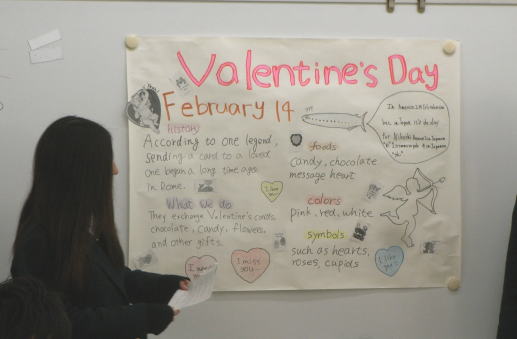 Valentine's Day
February 14
history
According to one legend,
sending a card to a loved
one began a long time ago
in Rome.
I love you
What we do
They exchange Valentine's cards,
chocolate, candy, flowers,
and other gifts.
I miss you
foods
candy, chocolate
message heart
colors
pink, red, white
symbols
such as hearts,
roses, cupids
I like you!
In America it's
but in Japan it's the day
for